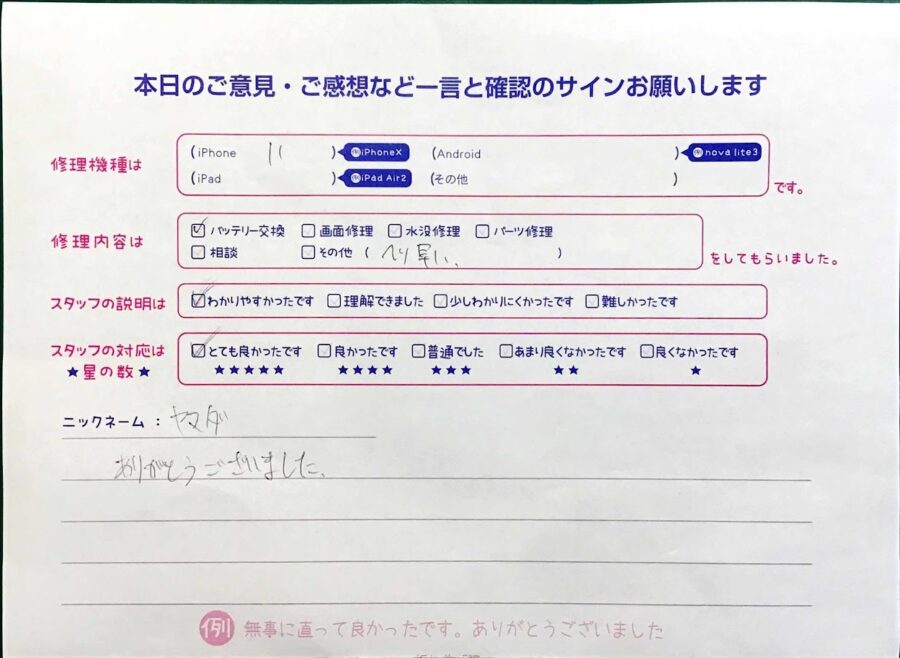 本日のご意見・ご感想など一言と確認のサインお願いします
修理機種は
(iPhone 11 ) 例iPhoneX (Android ) 例nova lite3
(iPad ) 例iPad Air2 (その他 ) です。
修理内容は
バッテリー交換 画面修理 水没修理 パーツ修理
相談 その他 ( へり早い、 ) をしてもらいました。
スタッフの説明は わかりやすかったです 理解できました 少しわかりにくかったです 難しかったです
スタッフの対応は とても良かったです 良かったです 普通でした あまり良くなかったです 良くなかったです
★星の数★ ★★★★★ ★★★★ ★★★ ★★ ★
ニックネーム : ヤマダ
ありがとうございました。
例 無事に直って良かったです。ありがとうございました